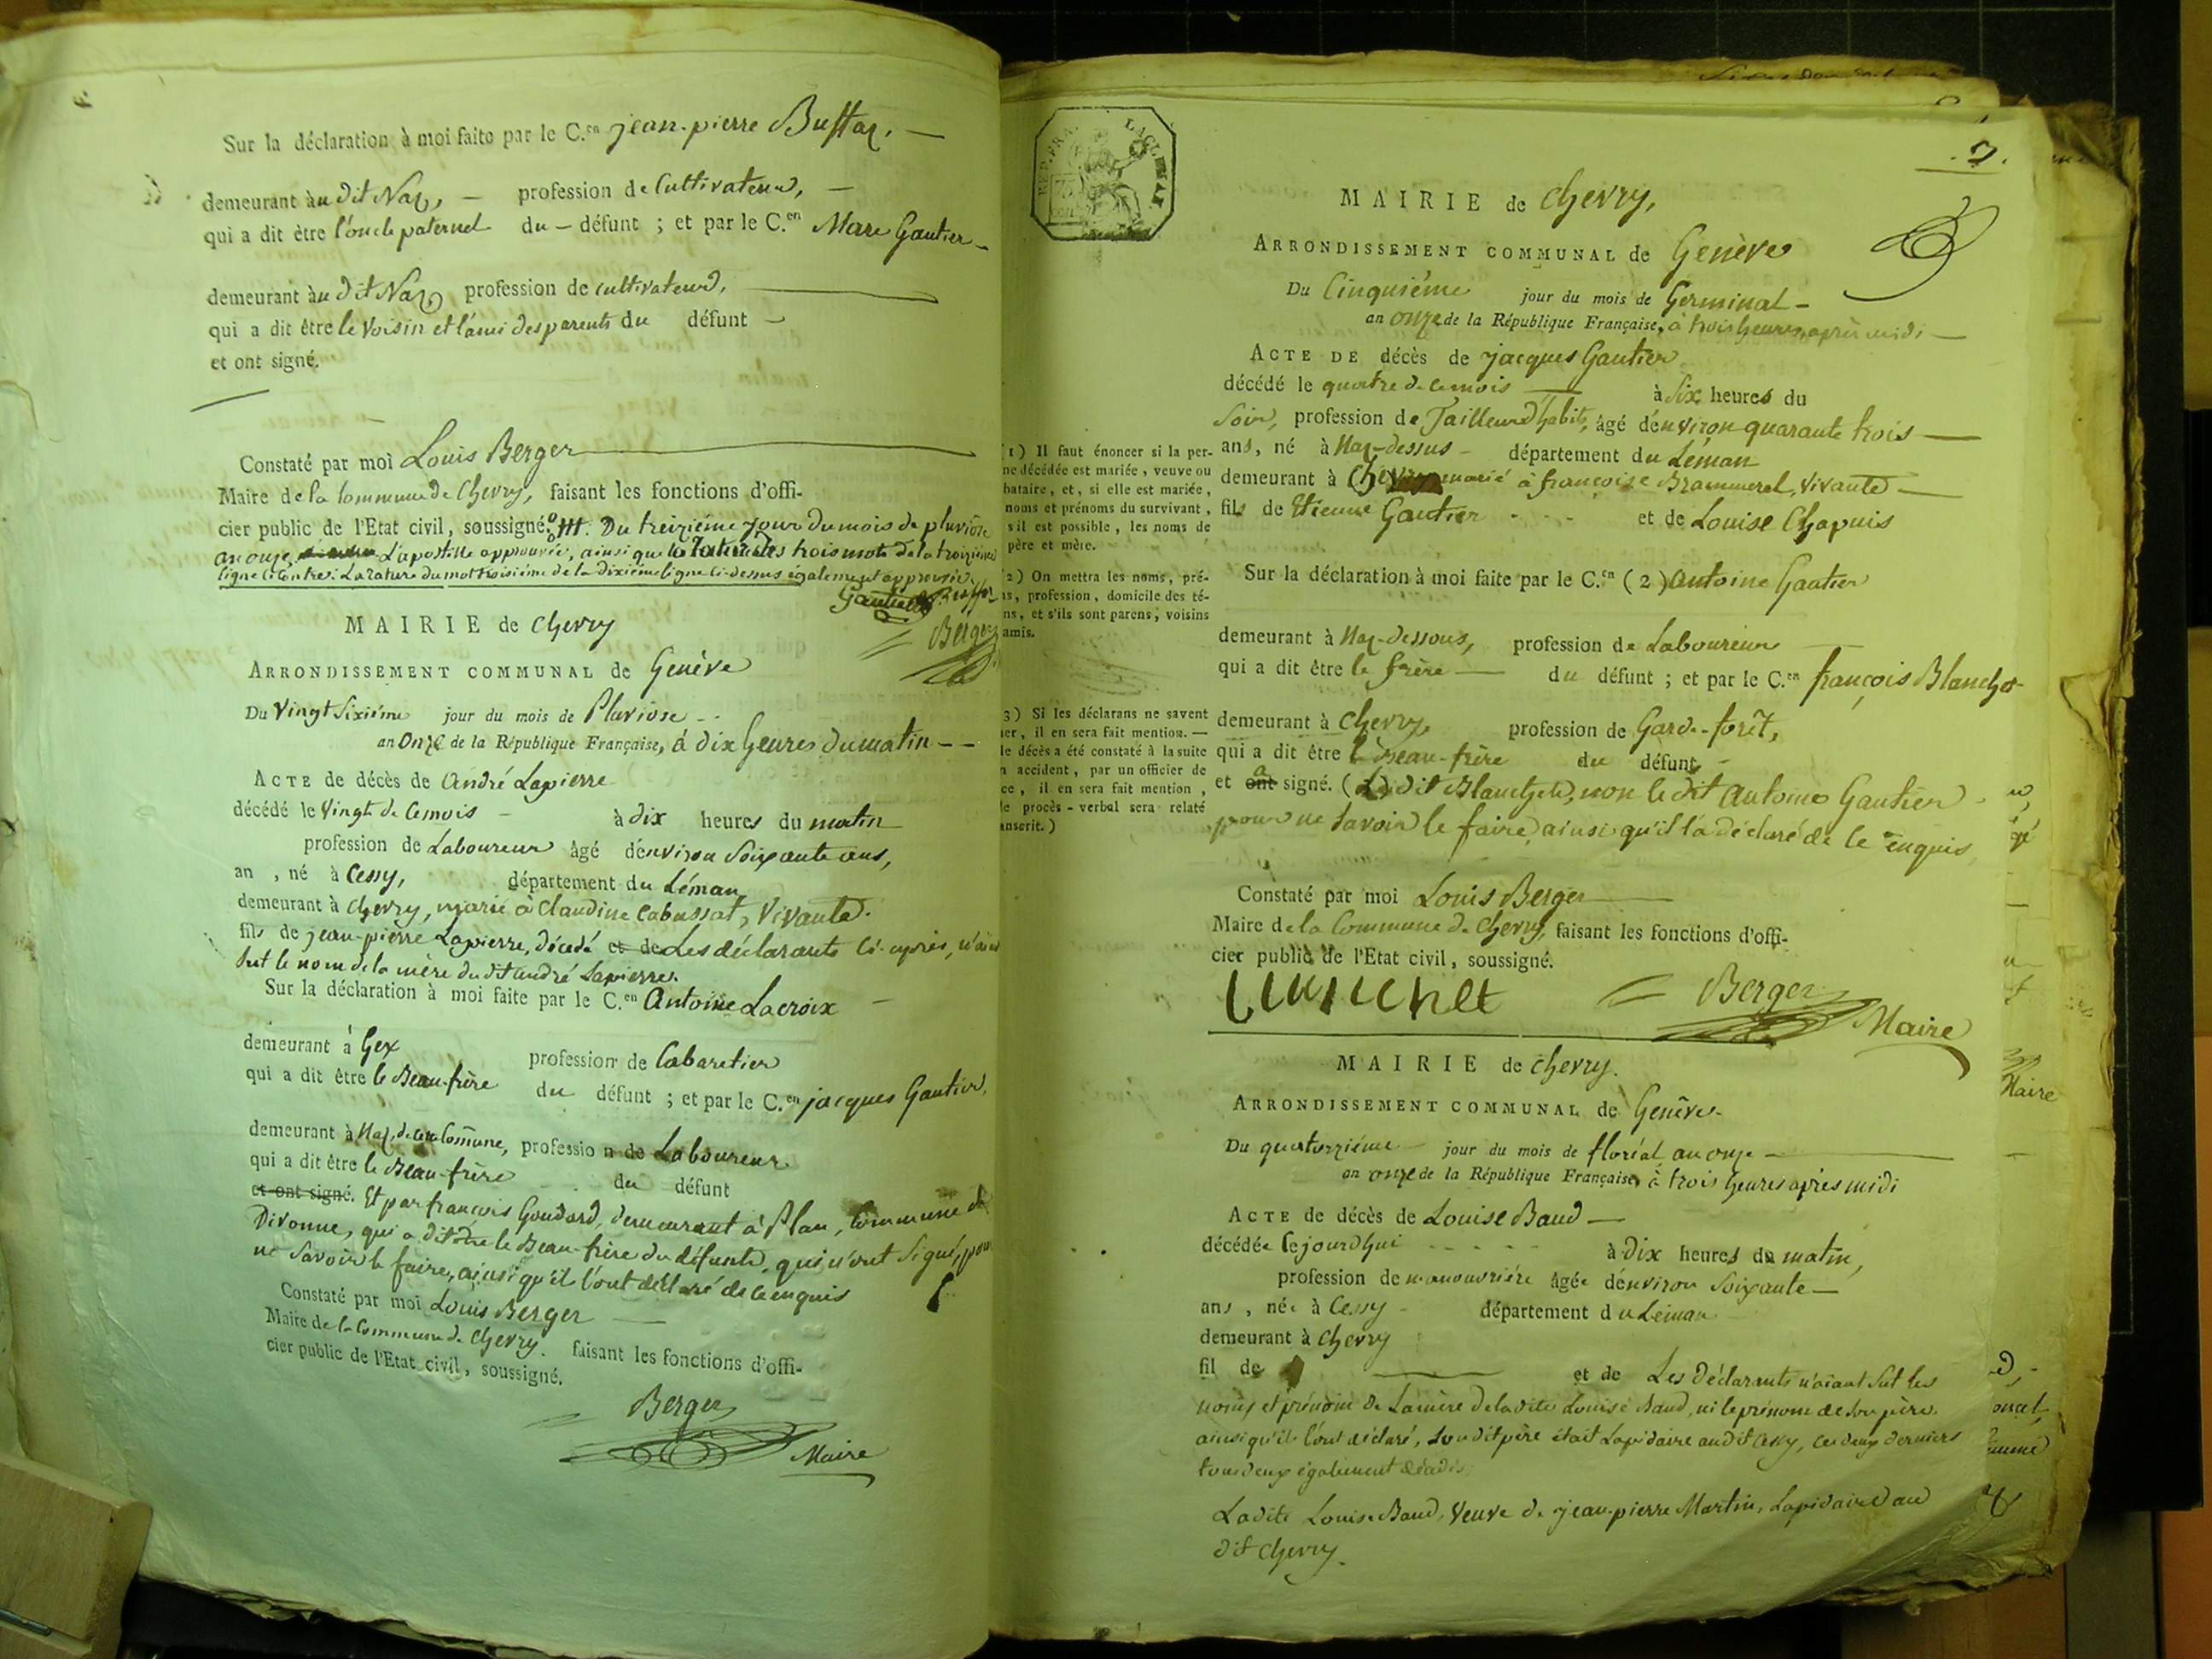 Sur la déclaration à moi faite par le C.en jean-pierre Buffaz.
demeurant au dit Naz, profession de Cultivateur,
qui a dit être l'oncle paternel du défunt ; et par le C.en Marc Gautier
demeurant au dit Naz, profession de cultivateur,
qui a dit être le voisin et l'ami des parents du défunt
et ont signé.
Constaté par moi Louis Berger
Maire de la Commune de Chevry, faisant les fonctions d'offi-
cier public de l'Etat civil, soussigné. Du treizième jour du mois de pluviose
an onze, L'apostille approuvée, ainsi que la rature des trois mots de la troizième
ligne ci-contre. La rature du mot troisième de la dixième ligne ci-dessus également approuvée.
Gautier Buffaz
Berger
MAIRIE de Chevry
ARRONDISSEMENT COMMUNAL de Genève
Du Vingt Sixième jour du mois de Pluviose
an Onze de la République Française, à dix heures du matin
ACTE de décès de André Lapierre
décédé le Vingt de ce mois à dix heures du matin
profession de Laboureur âgé d'environ Soixante ans,
an , né à Cessy, département du Léman
demeurant à Chevry, marié à Claudine Cabussat, Vivante.
fils de jean-pierre Lapierre, décédé et de Les déclarants ci-après, n'aiant
sut le nom de la mère du dit andré Lapierre.
Sur la déclaration à moi faite par le C.en Antoine Lacroix
demeurant à Gex profession de Cabaretier
qui a dit être le Beau-frère du défunt ; et par le C.en jacques Gautier,
demeurant à Naz, de cette Comune, profession de Laboureur
qui a dit être le Beau-frère du défunt
et ont signé. Et par françois Goudard, demeurant à Plan, Commune de
Divonne, qui a dit être le Beau-frère du défunt, qui n'ont signé, pour
ne Savoir le faire, ainsi qu'ils l'ont déclaré de ce enquis
Constaté par moi Louis Berger
Maire de la Commune de Chevry. faisant les fonctions d'offi-
cier public de l'Etat civil, soussigné.
Berger
Maire
7.
REP. FRA.
MAIRIE de Chevry,
ARRONDISSEMENT COMMUNAL de Genève
Du Cinquième jour du mois de Germinal
an onze de la République Française, à trois heures, après midi
ACTE DE décès de jacques Gautier
décédé le quatre de ce mois à Six heures du
Soir, profession de Tailleur d'habits, âgé d'environ quarante trois
ans, né à Naz-dessus département du Léman
demeurant à Chevry marié à françoise Brammerel, Vivante
fils de Etienne Gautier et de Louise Chapuis
(1) Il faut énoncer si la per-
ne décédée est mariée, veuve ou
bataire, et, si elle est mariée,
noms et prénoms du survivant,
s'il est possible, les noms de
père et mère.
Sur la déclaration à moi faite par le C.en (2) Antoine Gautier
demeurant à Naz-dessous, profession de Laboureur
qui a dit être le frère du défunt ; et par le C.en françois Blanche
(2) On mettra les noms, pré-
ns, profession, domicile des té-
ns, et s'ils sont parens, voisins
amis.
demeurant à Chevry, profession de Garde-forêt,
qui a dit être le Beau-frère du défunt
et ont a signé. (Le dit Blanchet, non le dit Antoine Gautier
pour ne Savoir le faire, ainsi qu'il l'a déclaré de ce enquis
3) Si les déclarans ne savent
er, il en sera fait mention. —
le décès a été constaté à la suite
n accident, par un officier de
ce, il en sera fait mention,
le procès-verbal sera relaté
anscrit.)
Constaté par moi Louis Berger
Maire de la Commune de Chevry, faisant les fonctions d'offi-
cier public de l'Etat civil, soussigné.
Berger
Maire
MAIRIE de Chevry.
ARRONDISSEMENT COMMUNAL de Genève
Du quatorzième jour du mois de floréal an onze
an onze de la République Française, à trois heures après midi
ACTE de décès de Louise Baud
décédée ce jourd'hui à dix heures du matin,
profession de manouvrière âgée d'environ Soixante
ans, née à Cessy département du Léman
demeurant à Chevry
fil de et de Les Déclarants n'aiant sut les
noms et prénom de la mère de la dite Louise Baud, ni le prénom de son père
ainsi qu'ils l'ont déclaré, son dit père était Lapidaire au dit Cessy, ces deux derniers
tous deux également décédés.
La dite Louise Baud, Veuve de jean-pierre Martin, Lapidaire au
dit Chevry.
Maire